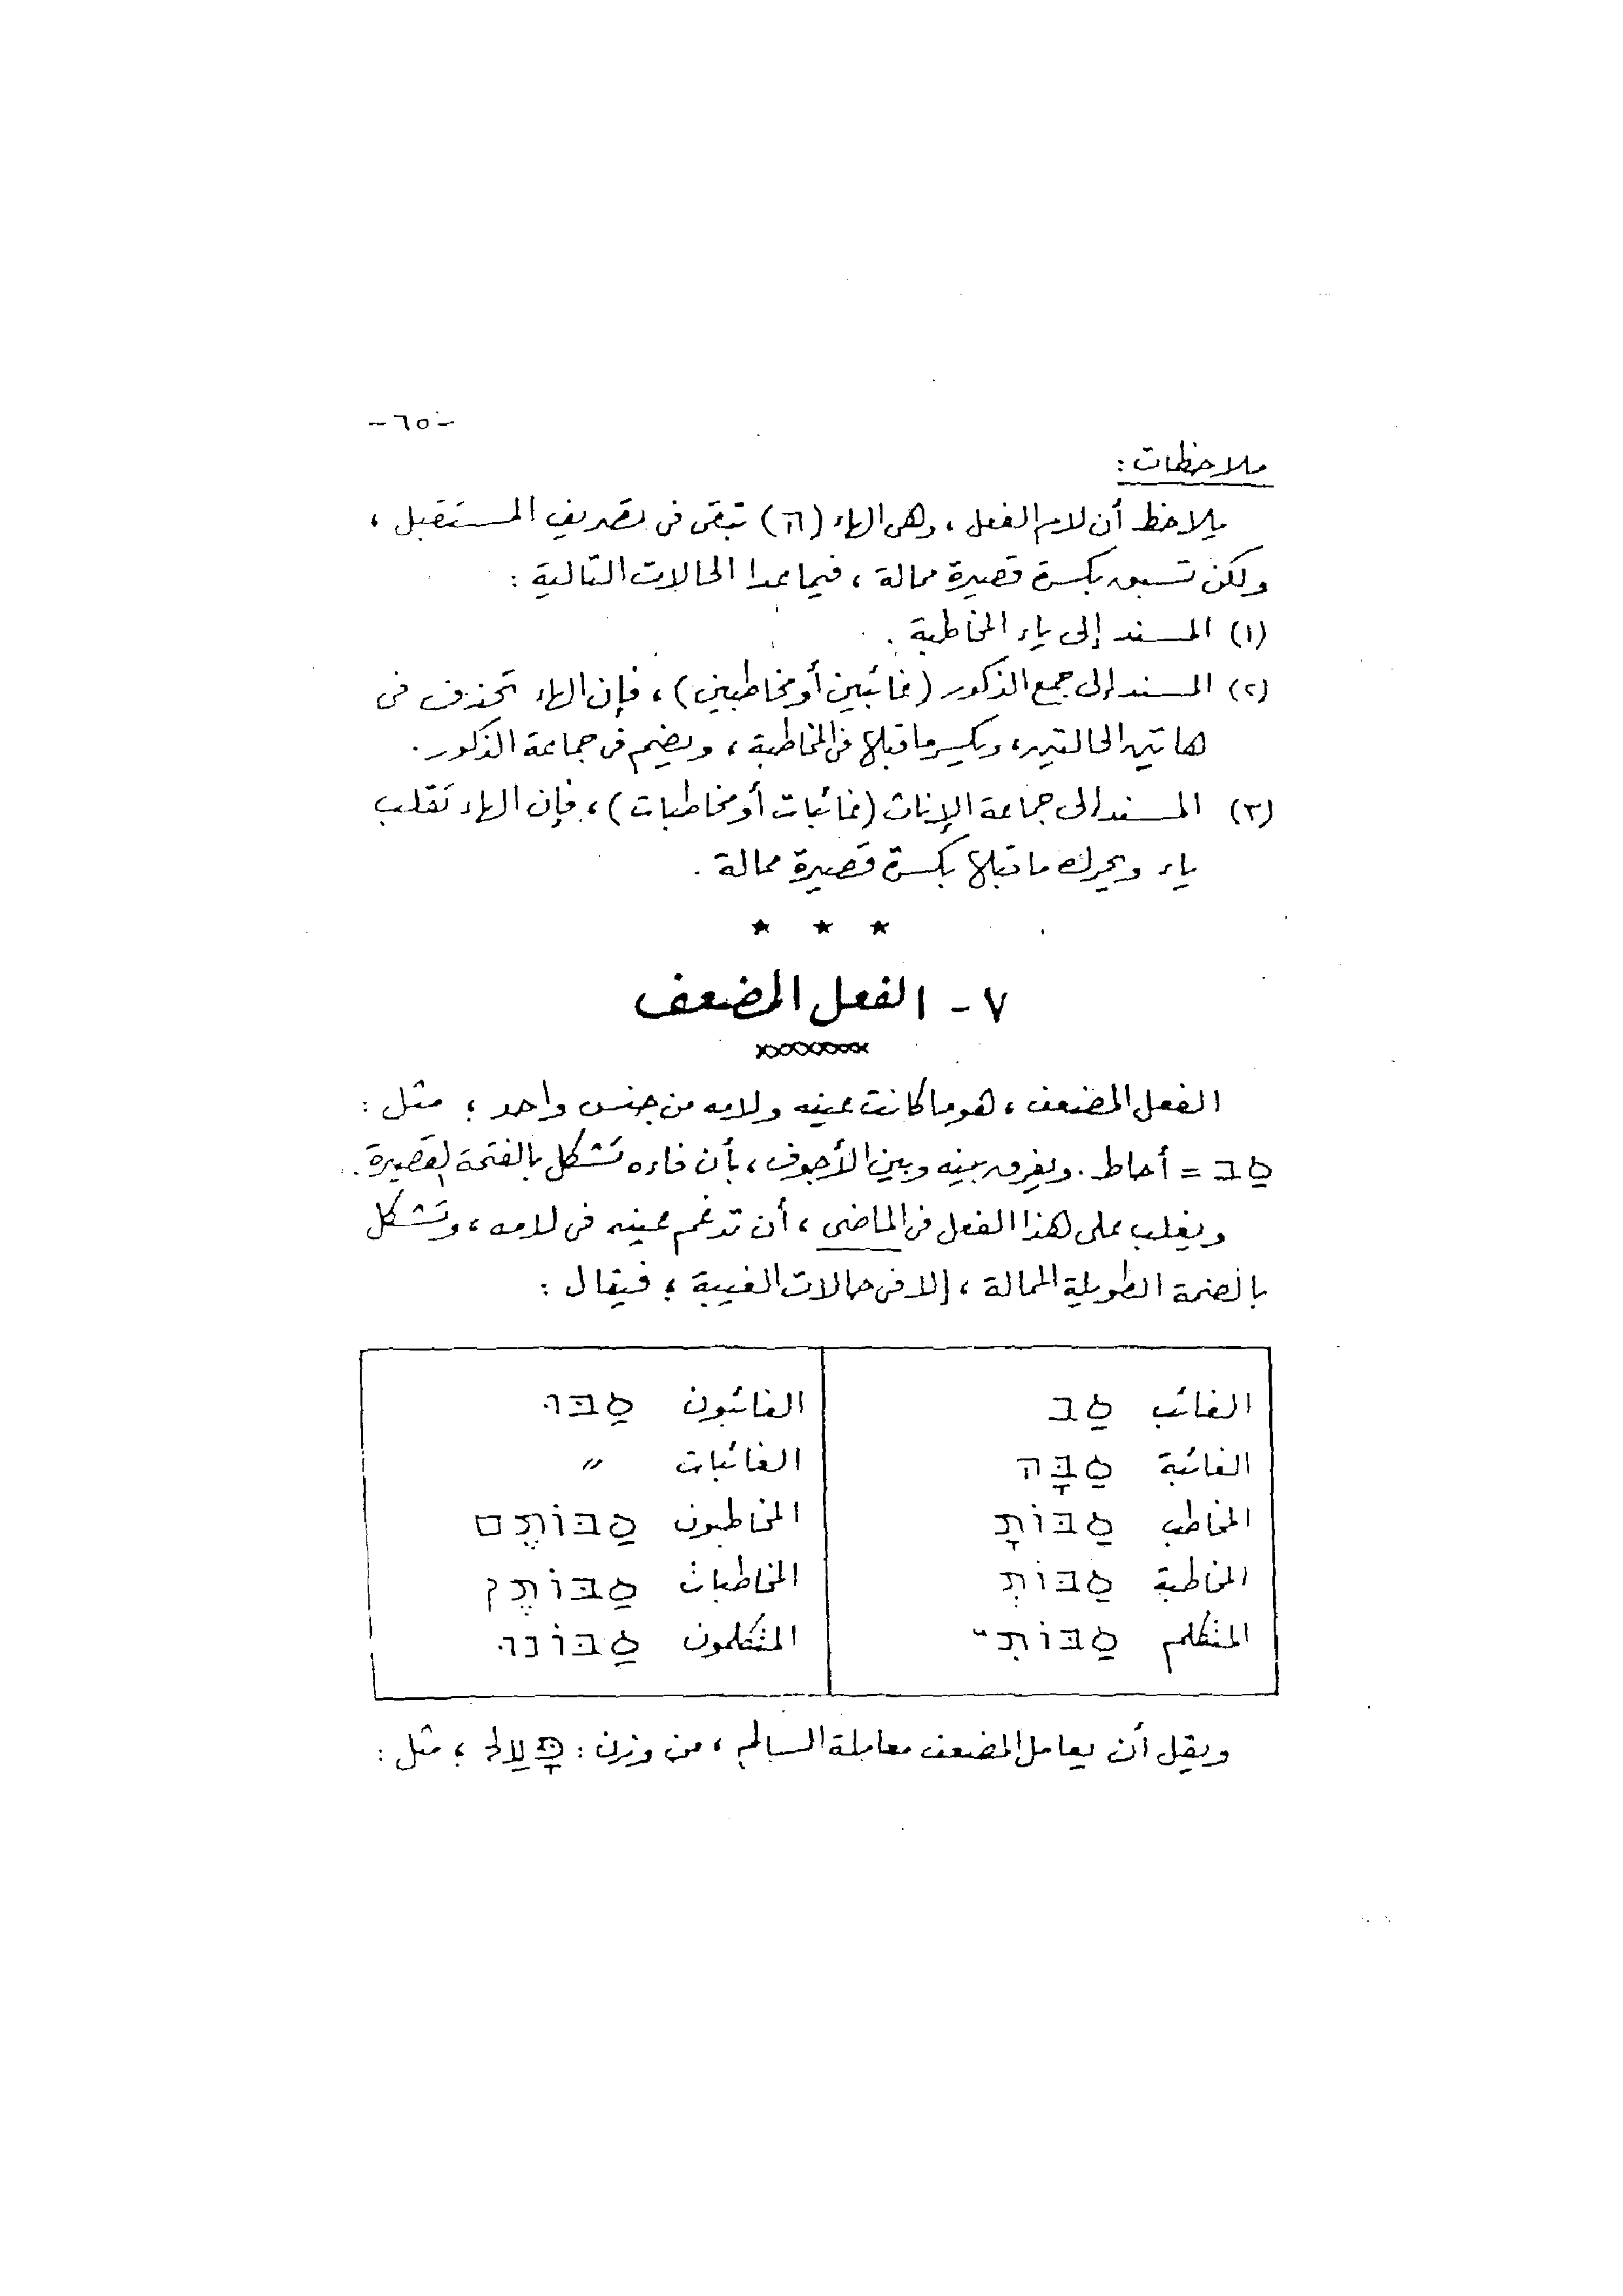 -٦٥-
ملاحظات :
يلاحظ أن لام الفعل ، وهى الهاء (ה) تبقى فى تصريف المستقبل ،
ولكن تسبق بكسرة قصيرة ممالة ، فيما عدا الحالات التالية :
(١) المسند إلى ياء المخاطبة .
(٢) المسند إلى جمع الذكور (غائبين أو مخاطبين) ، فإن الهاء تحذف فى
هاتين الحالتين ، ويكسر ما قبلها فى المخاطبة ، ويضم فى جماعة الذكور .
(٣) المسند إلى جماعة الإناث (غائبات أو مخاطبات) ، فإن الهاء تقلب
ياء ويحرك ما قبلها بكسرة قصيرة ممالة .
* * *
٧ - الفعل المضعف
الفعل المضعف ، هو ما كانت عينه ولامه من جنس واحد ؛ مثل :
סַב = أحاط . ويفرق بينه وبين الأجوف ، بأن فاءه تشكل بالفتحة القصيرة .
ويغلب على هذا الفعل فى الماضى ، أن تدغم عينه فى لامه ، وتشكل
بالضمة الطويلة الممالة ، إلا فى حالات الغيبة ؛ فيقال :
الغائب סַב الغائبون סַבּוּ
الغائبة סַבָּה الغائبات "
المخاطب סַבּוֹתָ المخاطبون סַבּוֹתֶם
المخاطبة סַבּוֹתְ المخاطبات סַבּוֹתֶן
المتكلم סַבּוֹתִי المتكلمون סַבּוֹנוּ
ويقل أن يعامل المضعف معاملة السالم ، من وزن : פָּעַל ؛ مثل :